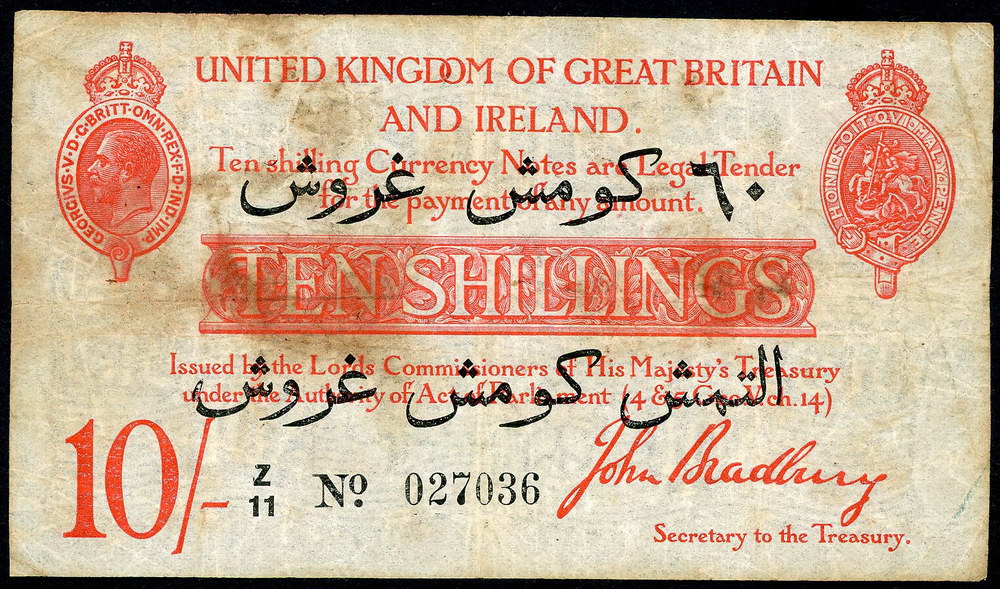 UNITED KINGDOM OF GREAT BRITAIN
AND IRELAND.
GEORGIVS·V·D·G·BRITT·OMN·REX·F·D·IND·IMP·
HONI·SOIT·QVI·MAL·Y·PENSE
Ten shilling Currency Notes are Legal Tender
٦٠ كومش غروش
for the payment of any amount.
TEN SHILLINGS
Issued by the Lords Commissioners of His Majesty's Treasury
التمش كومش غروش
under the Authority of Act of Parliament (4 & 5 Geo. V. ch. 14)
10/-
Z
11
No 027036
John Bradbury
Secretary to the Treasury.